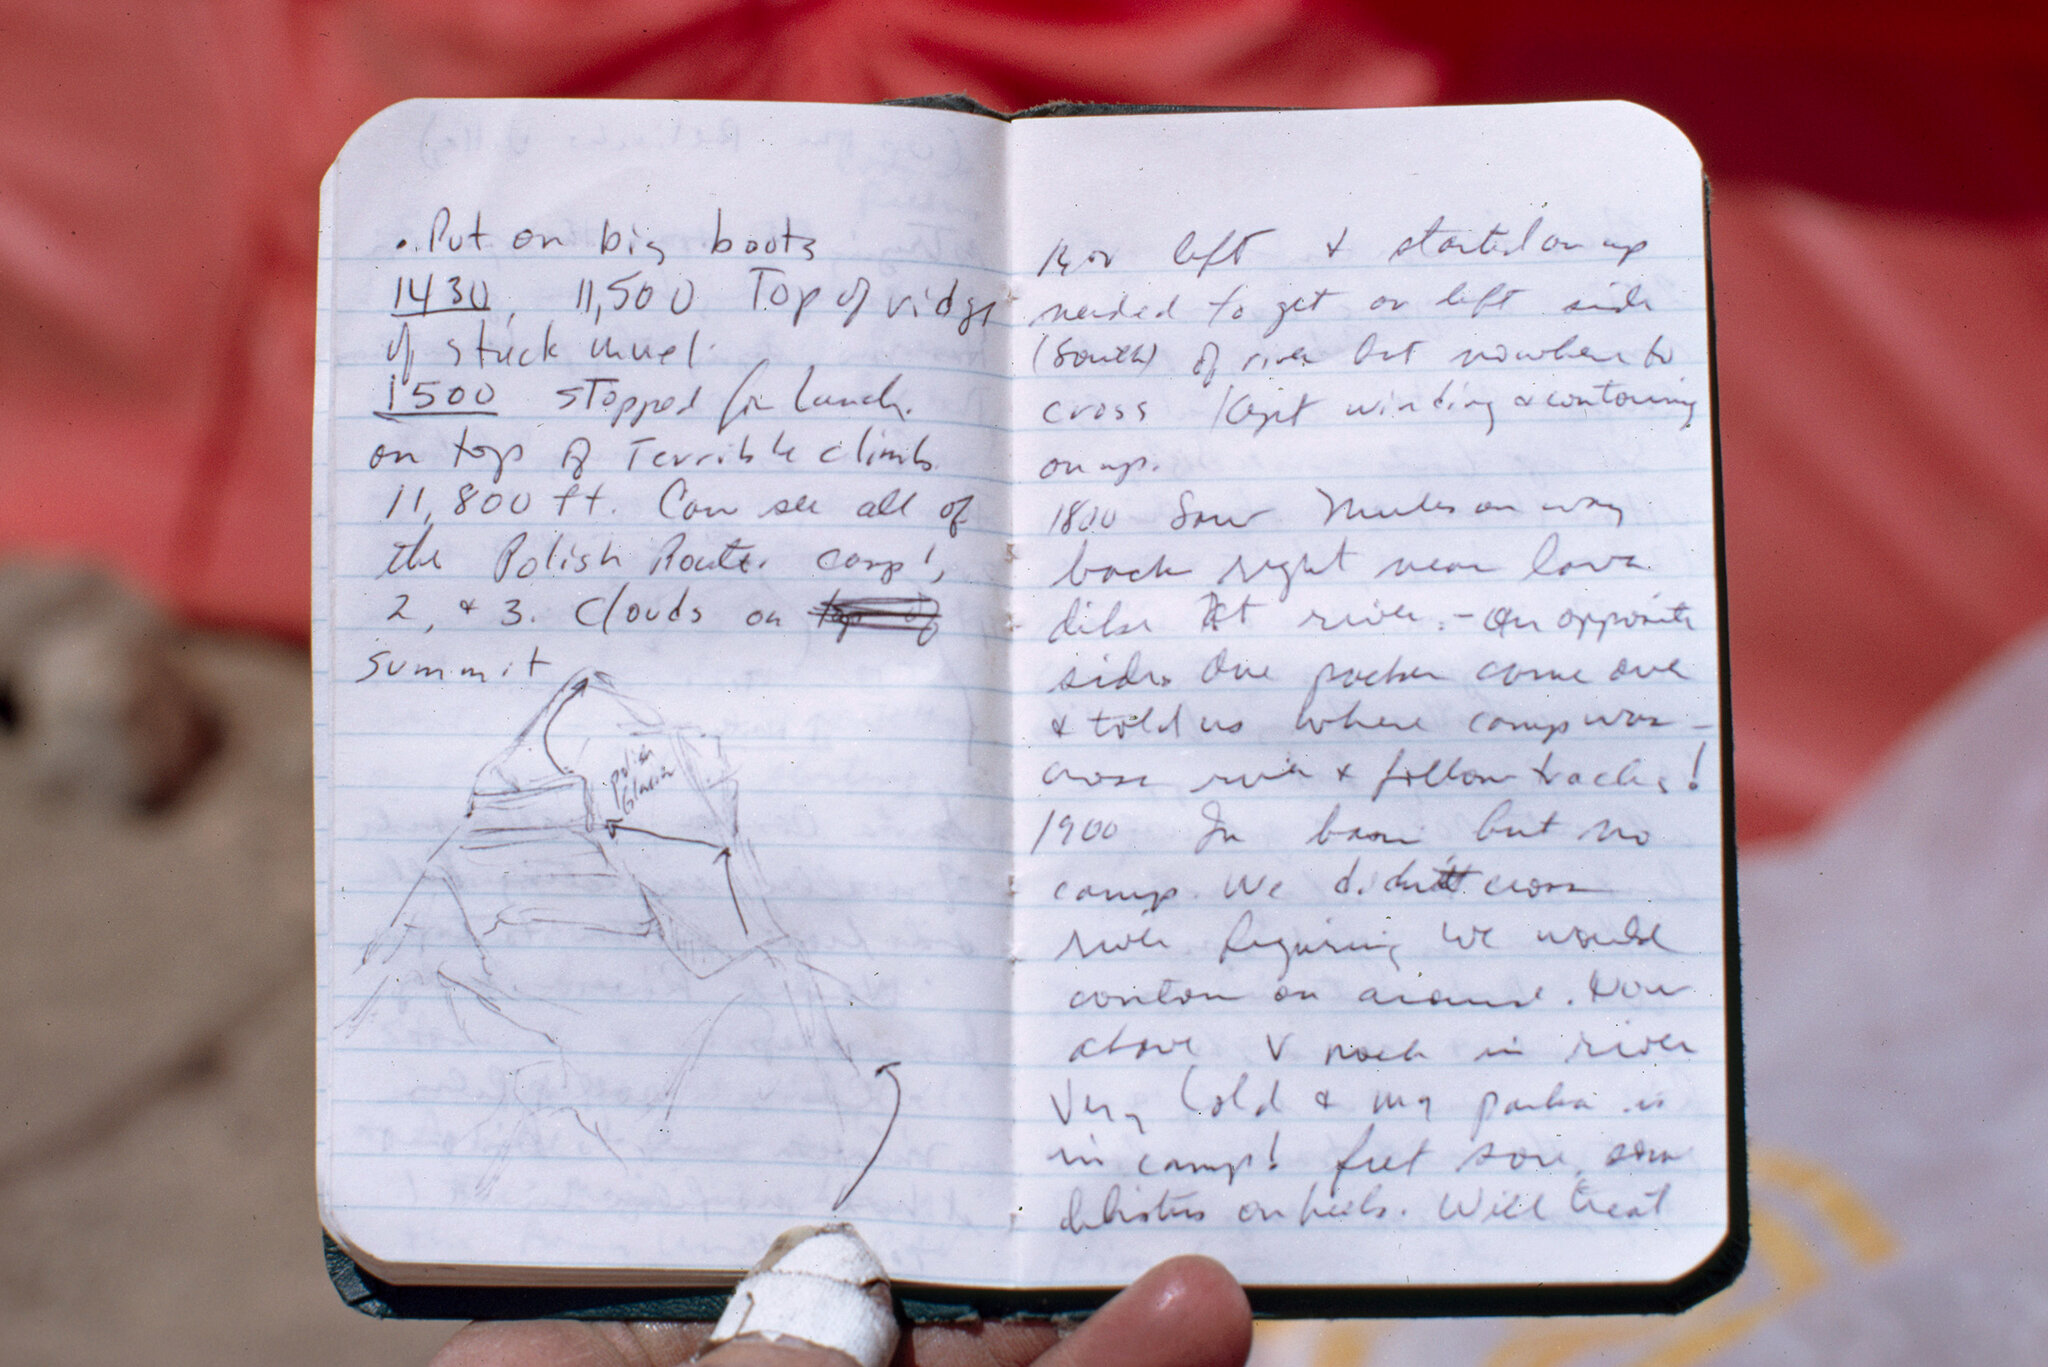 • Put on big boots
1430, 11,500 Top of ridge
of stuck mule.
1500 stopped for lunch.
on top of Terrible climb.
11,800 ft. Can see all of
the Polish Route. camp 1,
2, & 3. Clouds on top of
summit
Polish
Glacier
left & started on up
needed to get on left side
(South) of river but nowhere to
cross Kept winding & contouring
on up.
1800 Saw Mules on way
back right near lava
dike at river. - On opposite
side. One packer came over
& told us where camp was -
cross river & follow tracks!
1900 In basin but no
camp. We didn't cross
river figuring we would
contour on around. Now
above rock in river
Very Cold & my parka is
in camp! feet sore, some
blisters on heels. Will treat